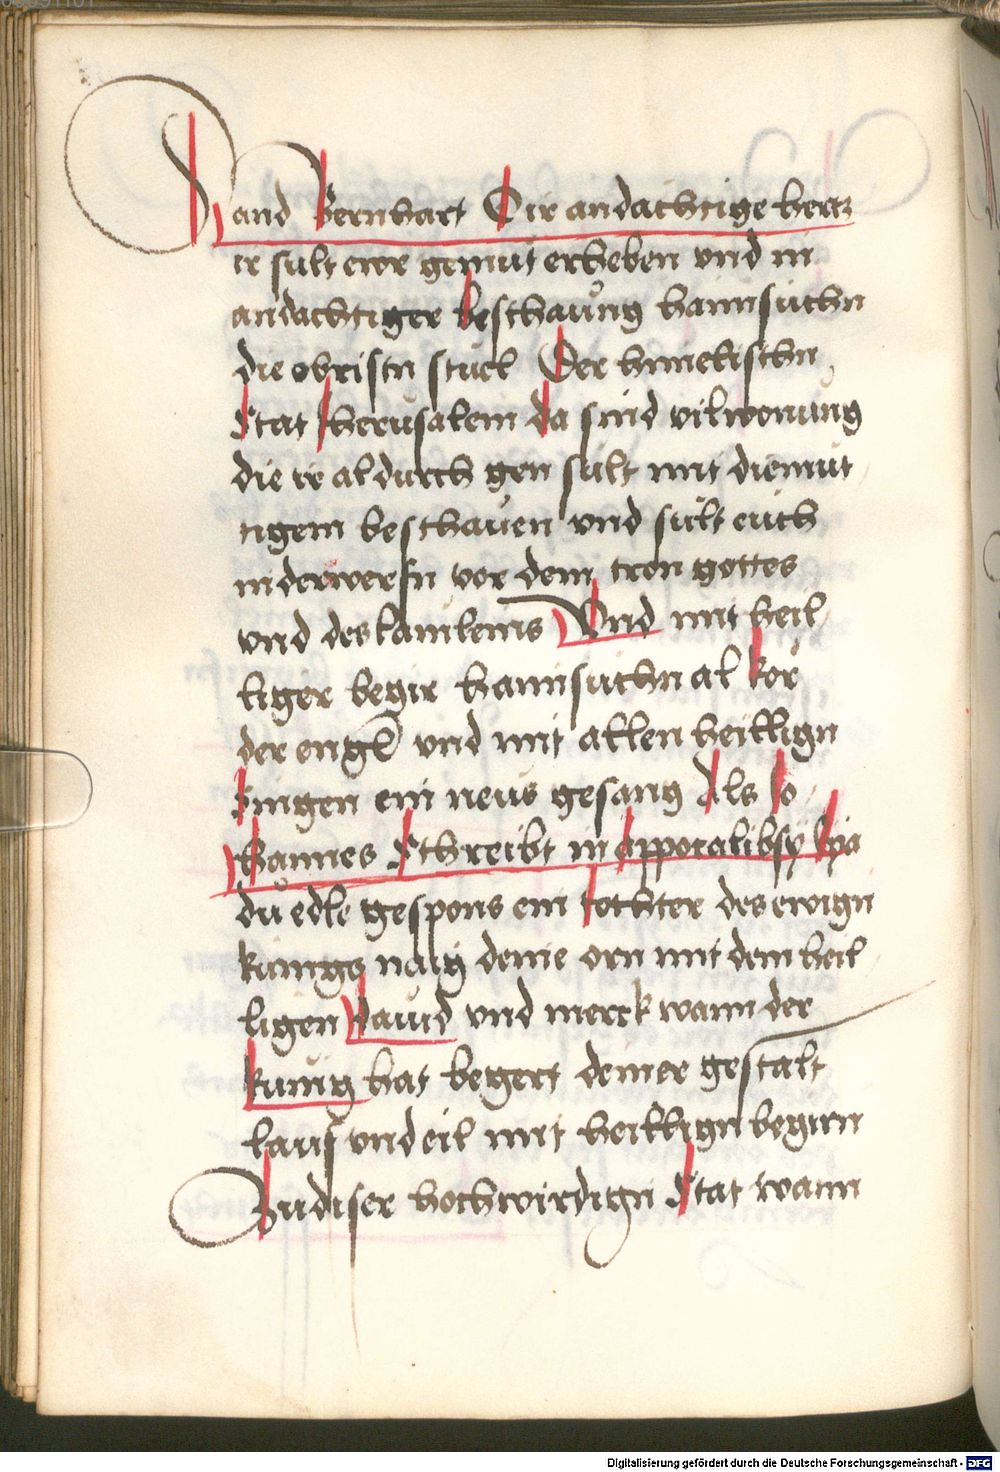 Sand Bernhart O ir andachtige hertz
ir sult ewr gemüt erheben vnd in
andachtiger beschaůng haimsuchn
die obristn stuel Der himelischn
Stat Jherusalem da sind vil wonung
die ir al durch gen sült mit diemut
tigem beschauen vnd sült euch
niderwerfn vor dem tron gottes
vnd des lamlems Vnd mit heil
liger begir haimsuchn al kör
der engel vnd mit allen heillign
Singen ein neus gesang Als Jo
hannes Schreibt in appocalibsy Sya
dů edle gespons ein tochter des ewign
kunigs naig deine orn mit dem heil
ligen dauid vnd merck wann der
kunig hat begert deiner gestalt
lauf vnd eil mit heillign begirn
Zu diser hochwirdign Stat wann
Digitalisierung gefördert durch die Deutsche Forschungsgemeinschaft - DFG